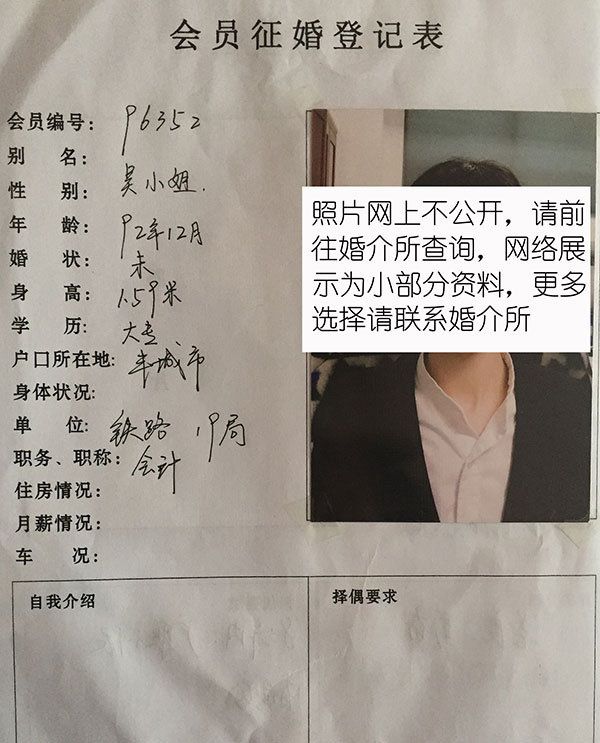 会员征婚登记表
会员编号: 96352
别 名:
性 别: 吴小姐.
年 龄: 92年12月
婚 状: 未
身 高: 1.59米
学 历: 大专
户口所在地: 丰城市
身体状况:
单 位: 铁路 19局
职务、职称: 会计
住房情况:
月薪情况:
车 况:
照片网上不公开，请前
往婚介所查询，网络展
示为小部分资料，更多
选择请联系婚介所
自我介绍
择偶要求